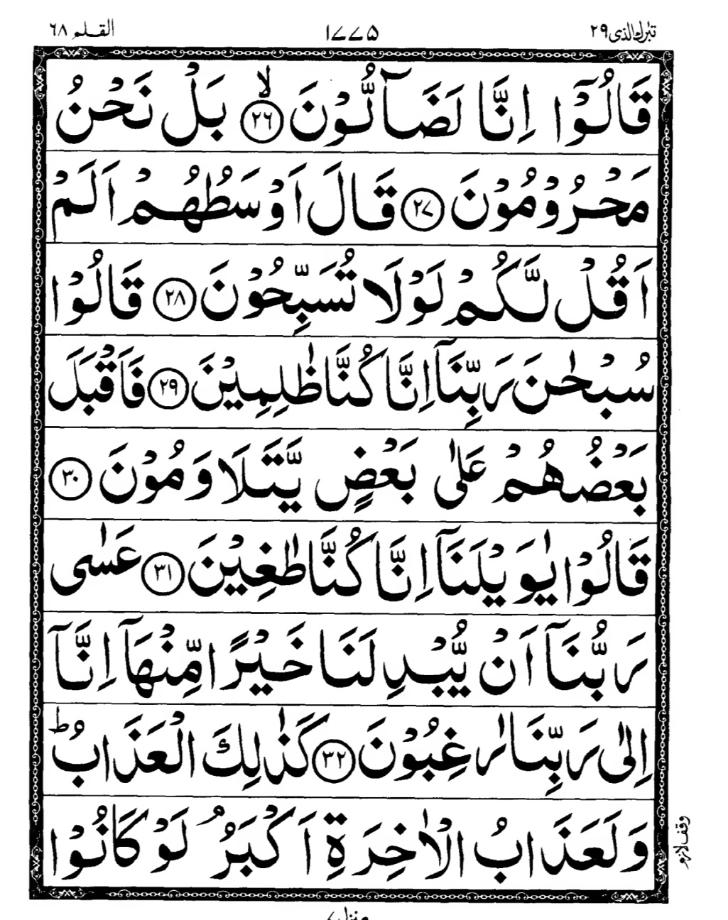 تبٰرك الذی ۲۹ ۱۷۷۵ القلم ۶۸
قَالُوْۤا اِنَّا لَضَآلُّوْنَ ۙ﴿۲۶﴾ بَلْ نَحْنُ
مَحْرُوْمُوْنَ ﴿۲۷﴾ قَالَ اَوْسَطُهُمْ اَلَمْ
اَقُلْ لَّكُمْ لَوْلَا تُسَبِّحُوْنَ ﴿۲۸﴾ قَالُوْا
سُبْحٰنَ رَبِّنَاۤ اِنَّا كُنَّا ظٰلِمِيْنَ ﴿۲۹﴾ فَاَقْبَلَ
بَعْضُهُمْ عَلٰى بَعْضٍ يَّتَلَاوَمُوْنَ ﴿۳۰﴾
قَالُوْا يٰوَيْلَنَاۤ اِنَّا كُنَّا طٰغِيْنَ ﴿۳۱﴾ عَسٰى
رَبُّنَاۤ اَنْ يُّبْدِلَنَا خَيْرًا مِّنْهَاۤ اِنَّاۤ
اِلٰى رَبِّنَا رٰغِبُوْنَ ﴿۳۲﴾ كَذٰلِكَ الْعَذَابُ ؕ
وَلَعَذَابُ الْاٰخِرَةِ اَكْبَرُ ۘ لَوْ كَانُوْا
وقف لازم
منزل ۷